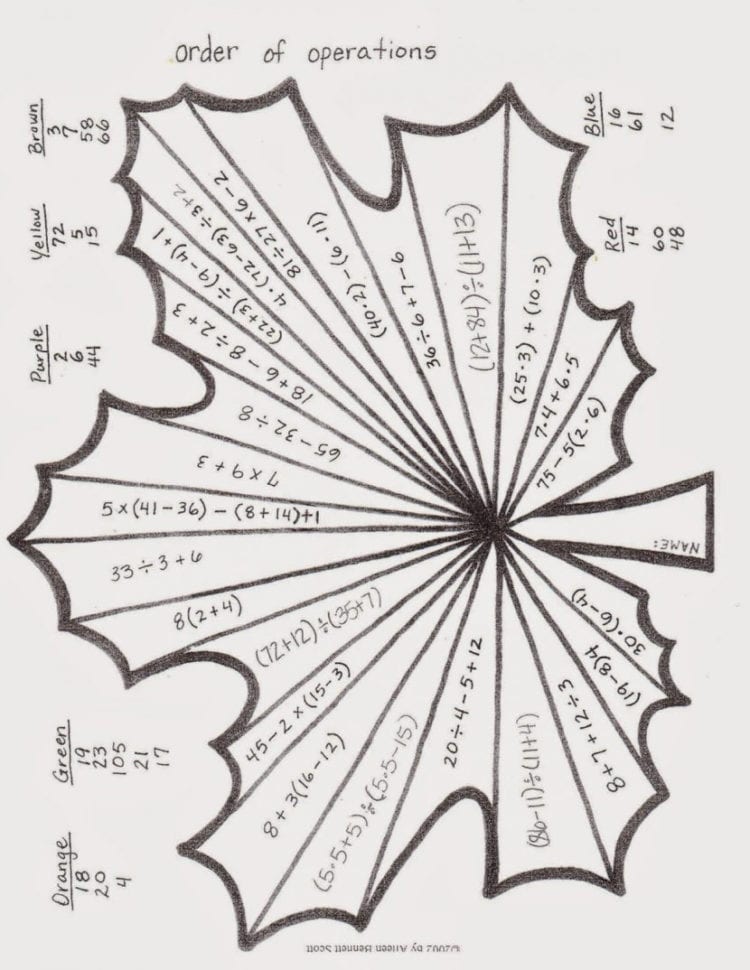 order of operations
Brown
3
7
58
66
Yellow
72
5
15
Purple
2
6
44
Blue
16
61
12
Red
14
60
48
Green
19
23
105
21
17
Orange
18
20
4
81÷27×6−2
4·(72−63)÷3+2
(22+3)÷(9−4)+1
18+6−8÷2+3
65−32÷8
7×9+3
5×(41−36)−(8+14)+1
33÷3+6
8(2+4)
(72+12)÷(35+7)
45−2×(15−3)
8+3(16−12)
(5·5+5)÷(5·5−15)
20÷4−5+12
(86−11)÷(11+4)
8+7+12÷3
(19−8)4
30·(6−4)
NAME:
75−5(2·6)
7·4+6·5
(25·3)+(10·3)
(12+84)÷(11+13)
36÷6+7−6
(40·2)−(6·11)
©2002 by Aileen Bennett Scott